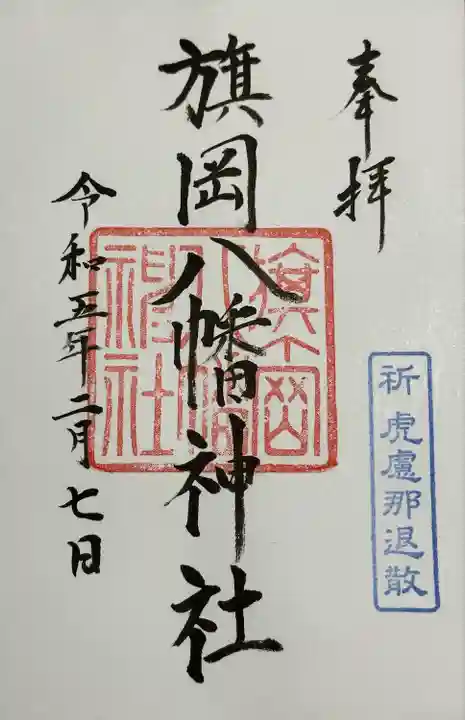 奉拝
祈虎慮那退散
旗岡八幡神社
旗岡八幡神社
令和五年二月七日